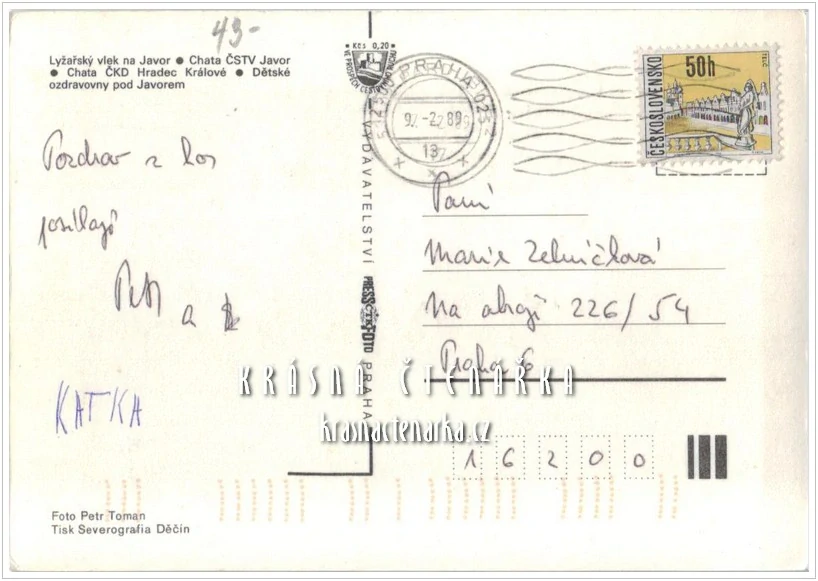 43-
Lyžařský vlek na Javor ● Chata ČSTV Javor
● Chata ČKD Hradec Králové ● Dětské
ozdravovny pod Javorem
Kčs 0,20
VE PROSPĚCH CESTOVNÍHO RUCHU
PRAHA 025
-2.89
13
ČESKOSLOVENSKO
50h
TELČ
Pozdrav z hor
posílají
Petr a
KATKA
VYDAVATELSTVÍ
PRESSFOTO
ČTK
PRAHA
Paní
Marie
Na okraji 226/54
Praha 6
16200
KRÁSNÁ ČTENÁŘKA
krasnactenarka.cz
Foto Petr Toman
Tisk Severografia Děčín